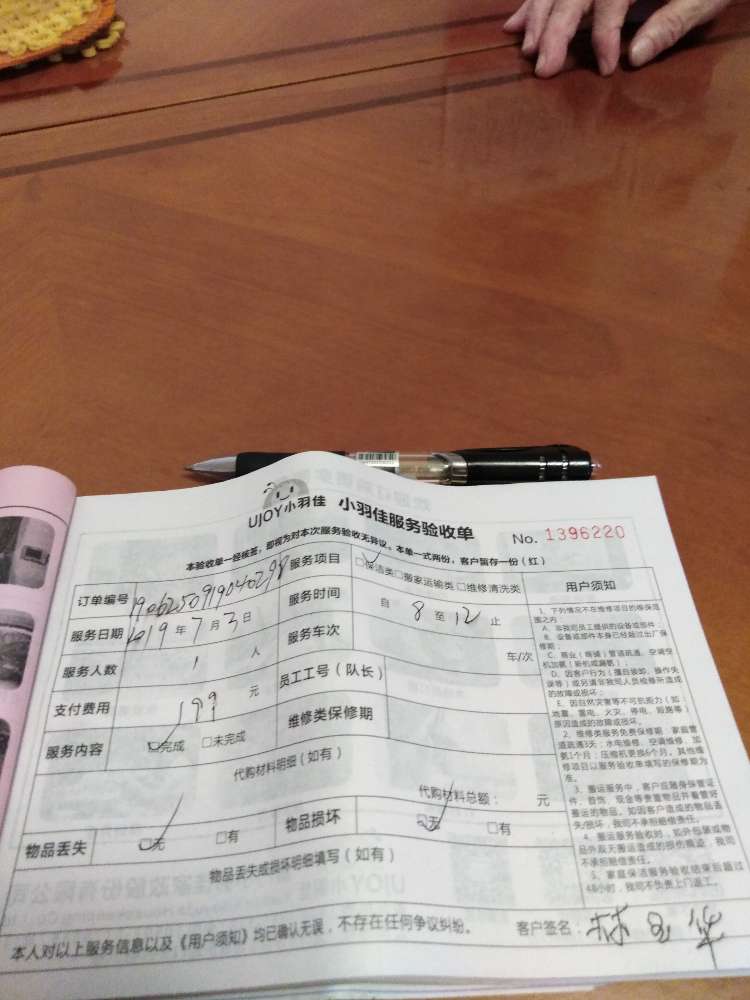 UJOY小羽佳 小羽佳服务验收单
No. 1396220
本验收单一经核签，即视为对本次服务验收无异议。本单一式两份，客户暂存一份（红）
订单编号 1906250919040298
服务项目 □保洁类□搬家运输类□维修清洗类
服务日期 2019年7月3日
服务时间 自 8 至 12 止
服务人数 1 人
服务车次 车/次
支付费用 199 元
员工工号（队长）
服务内容 □完成 □未完成
维修类保修期
代购材料明细（如有）
代购材料总额： 元
物品丢失 □无 □有
物品损坏 □无 □有
物品丢失或损坏明细填写（如有）
本人对以上服务信息以及《用户须知》均已确认无误，不存在任何争议纠纷。
客户签名：林玉华
用户须知
1、下列情况不在维修项目的维保范
围之内：
A、非我司员工提供的设备或部件；
B、设备或部件本身已经超过出厂保
修期；
C、商业（商铺）管道疏通、空调受
机加氨（新机或漏氨）；
D、因客户行为（擅自装卸、操作失
误等）或另请非我司人员检修所造成
的故障或损坏；
E、因自然灾害等不可抗能力（如：
地震、雷电、火灾、停电、短路等）
原因造成的故障或损坏。
2、维修类服务免费保修期：家庭管
道疏通3天；水电维修、空调维修、加
氨1个月；压缩机更换6个月。其他维
修项目以服务验收单填写的保修期为
准。
3、搬运服务中，客户应随身保管证
件、首饰、现金等贵重物品并看管好
搬运的物品。如因客户造成的物品丢
失/损坏，我司不承担赔偿责任。
4、搬运服务验收时，如外包装或物
品外观无搬运造成的损伤痕迹，我司
不承担赔偿责任。
5、家庭保洁服务验收结束后超过
48小时，我司不负责上门返工。